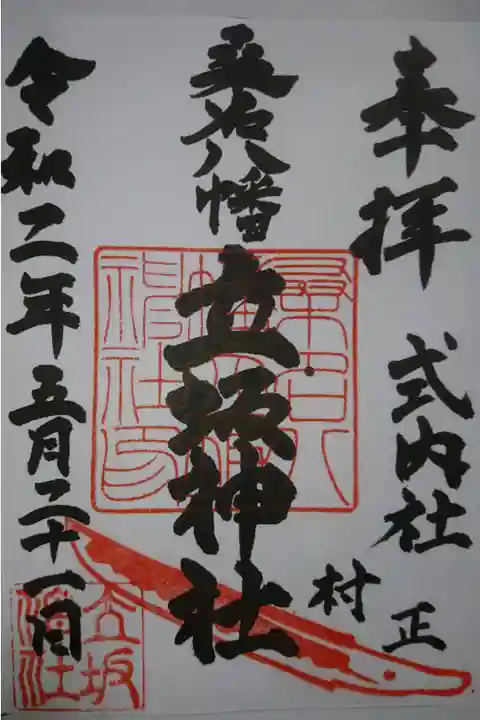 奉拝
式内社
村正
桑名八幡
立坂神社
令和二年五月二十一日
立坂
神社